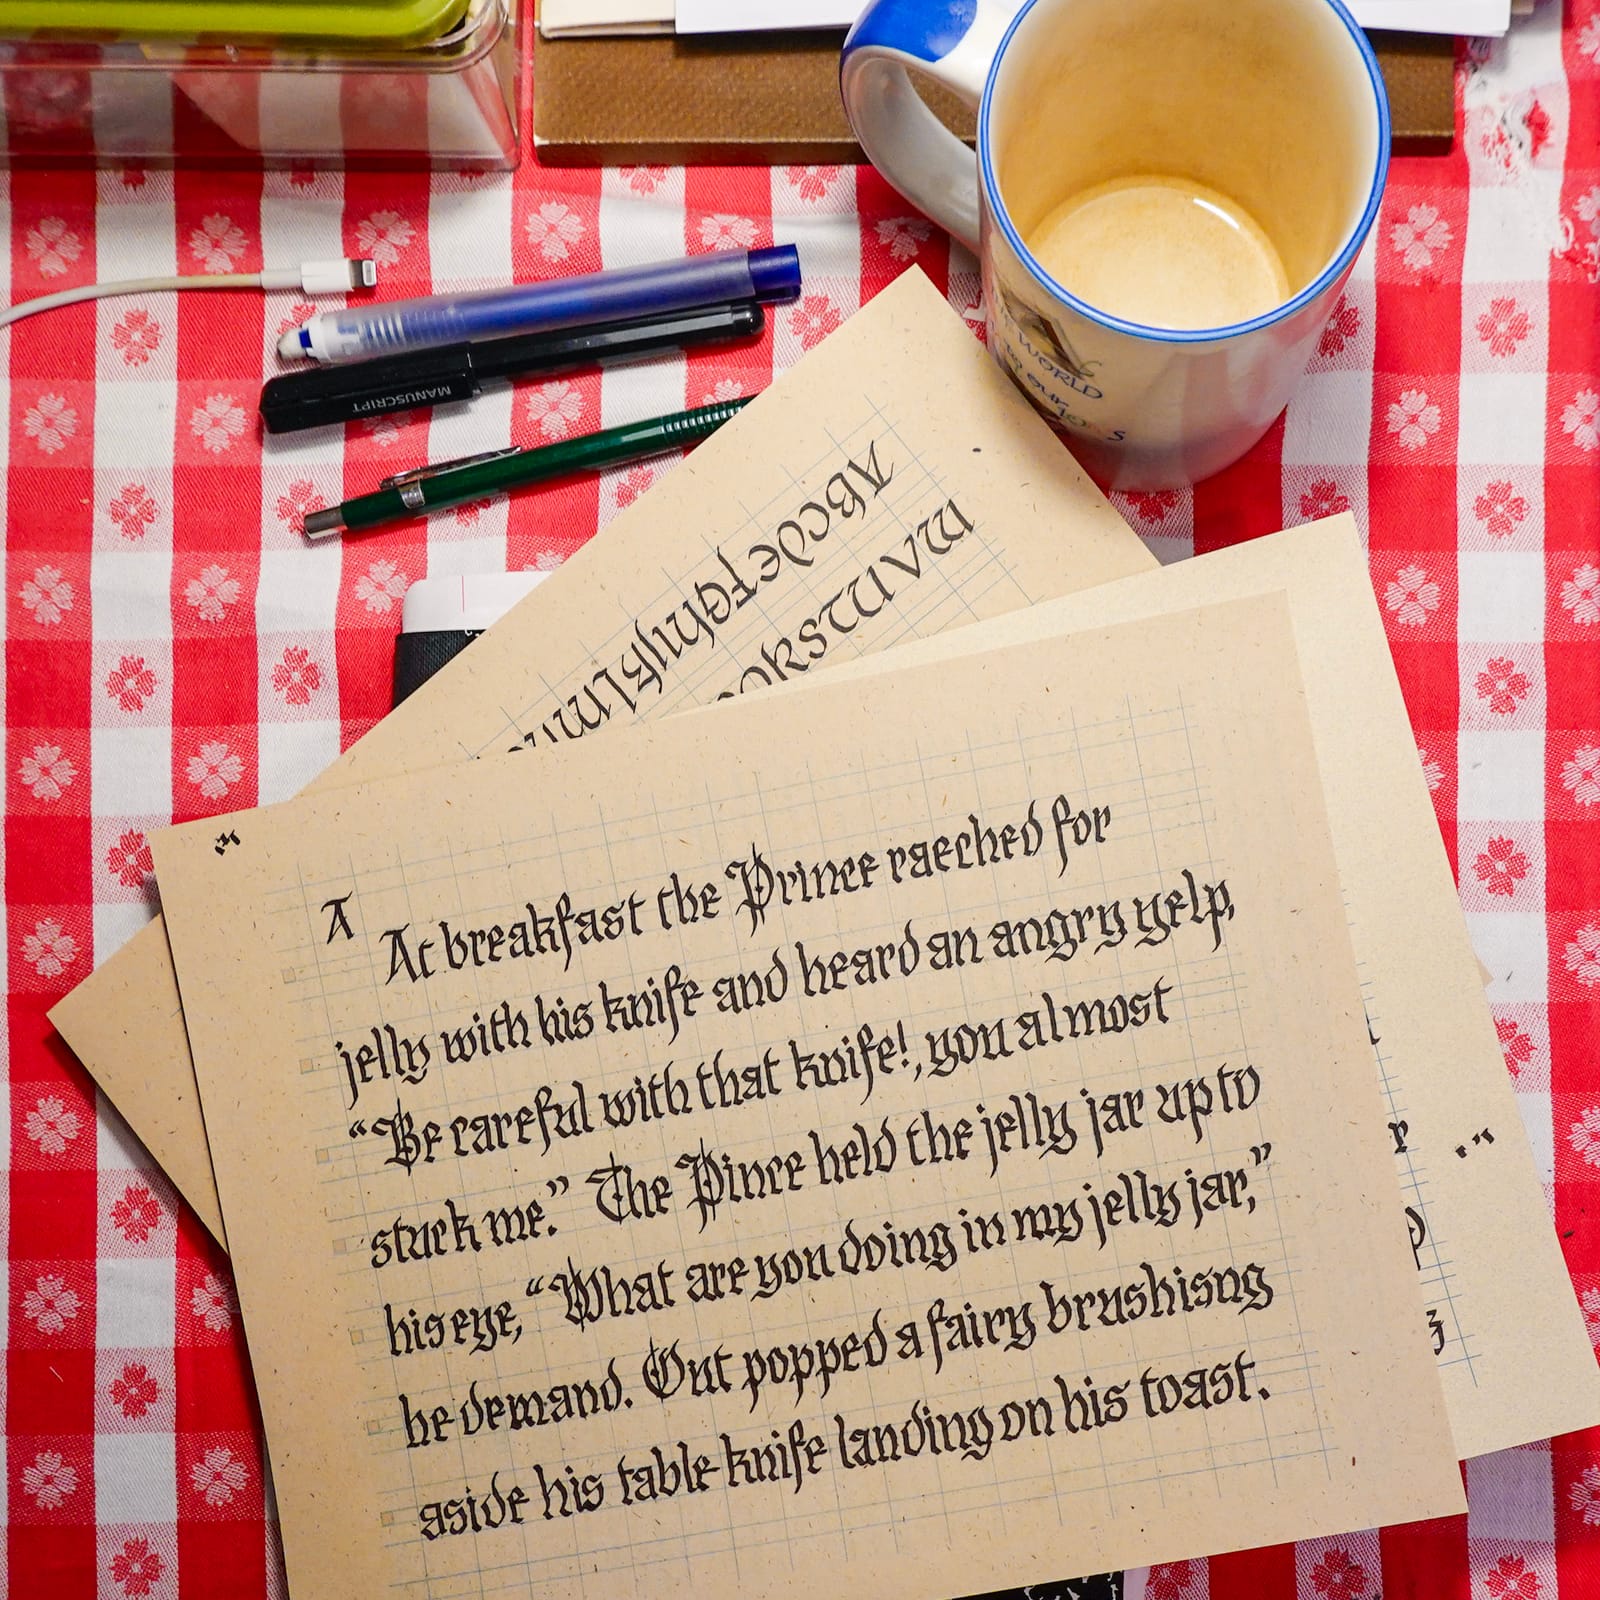 MANUSCRIPT
WORLD
our
ABCDEFGHIJKLM
RSTUVW
"
A At breakfast the Prince raeched for
jelly with his knife and heard an angry yelp,
“Be careful with that knife!, you almost
stuck me.” The Pince held the jelly jar up to
his eye, “What are you doing in my jelly jar,”
he demand. Out popped a fairy brushisng
aside his table knife landing on his toast.
r
."